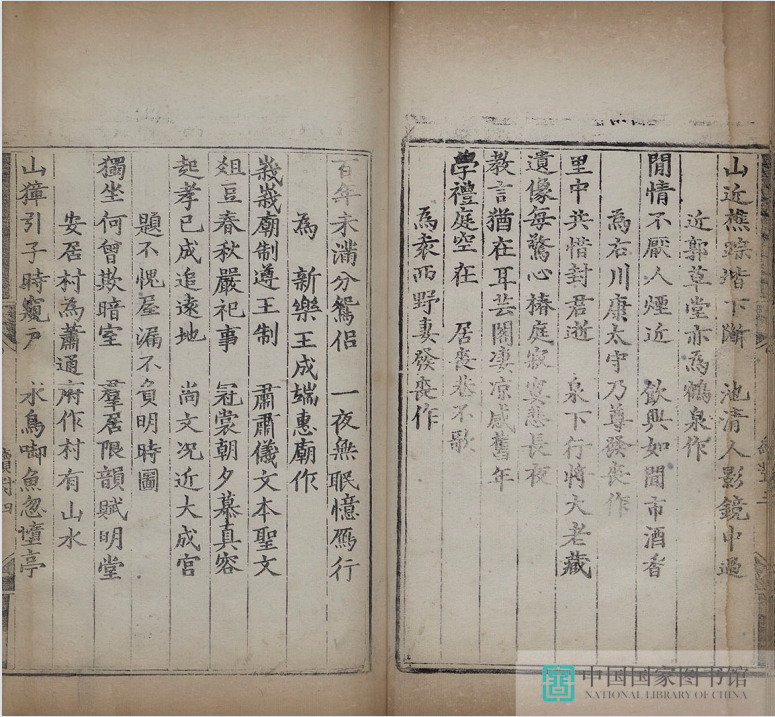 山近樵踪堦下斷　池清人影鏡中過
近郭草堂亦為鶴泉作
閒情不厭人煙近　飲興如聞市酒香
為右川康太守乃尊發喪作
里中共惜封君逝　泉下行將大老藏
遺像每驚心椿庭寂寞悲長夜
教言猶在耳芸閣凄凉感舊年
學禮庭空在　居喪巷不歌
為袁西野妻發喪作
百年未滿分鴛侶　一夜無眠憶鴈行
為　新樂王成端惠廟作
峩峩廟制遵王制　肅肅儀文本聖文
俎豆春秋嚴祀事　冠裳朝夕慕真容
起孝已成追遠地　尚文况近大成宮
題不愧屋漏不負明時圖
獨坐何曾欺暗室　羣居限韻賦明堂
安居村為蕭通府作村有山水
山獐引子時窺户　水鳥啣魚忽墮亭
中国国家图书馆
NATIONAL LIBRARY OF CHINA